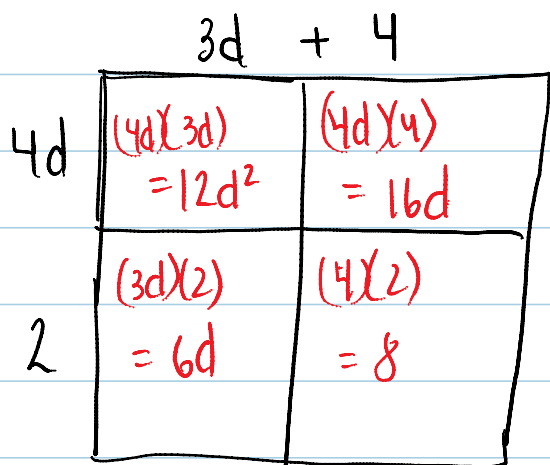 3d + 4
4d
(4d)(3d)
=12d²
(4d)(4)
= 16d
2
(3d)(2)
= 6d
(4)(2)
= 8